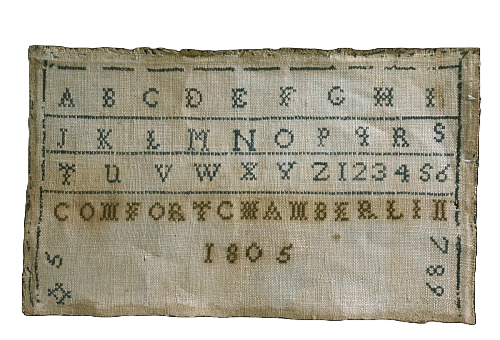 A B C D E F G H I
J K L M N O P Q R S
T U V W X Y Z 1 2 3 4 5 6
COMFORT CHAMBERLIN
1805
7 8 9